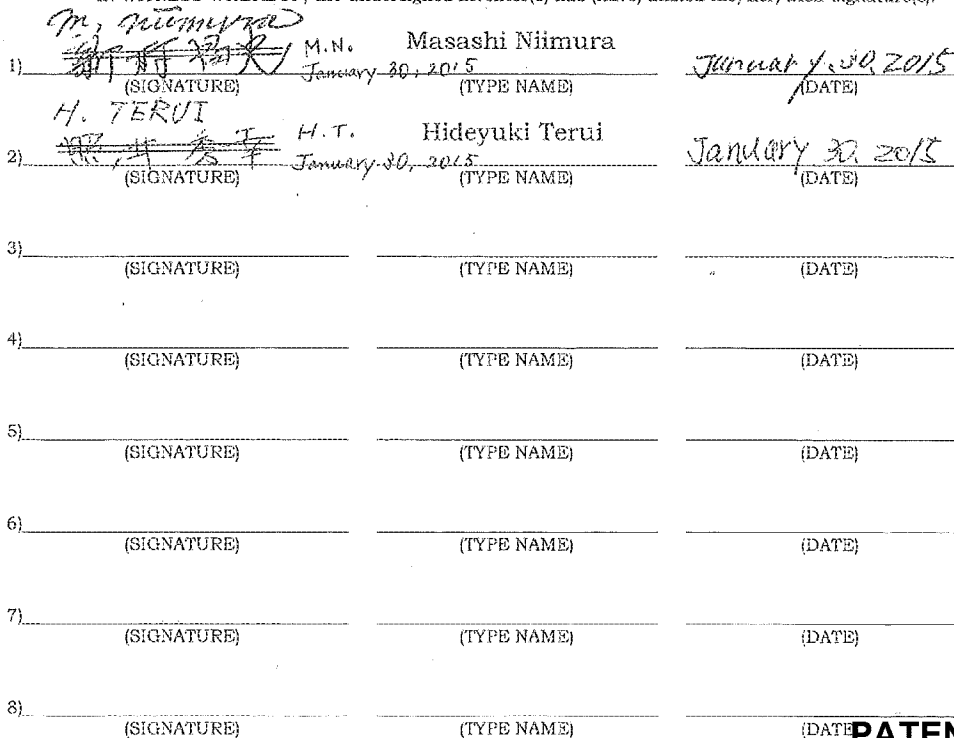 m. niimura
M.N. Masashi Niimura
1) January 30, 2015 January. 30, 2015
(SIGNATURE) (TYPE NAME) (DATE)
H. TERUI
照井秀幸 H.T. Hideyuki Terui
2) January 30, 2015 January 30. 2015
(SIGNATURE) (TYPE NAME) (DATE)
3)
(SIGNATURE) (TYPE NAME) (DATE)
4)
(SIGNATURE) (TYPE NAME) (DATE)
5)
(SIGNATURE) (TYPE NAME) (DATE)
6)
(SIGNATURE) (TYPE NAME) (DATE)
7)
(SIGNATURE) (TYPE NAME) (DATE)
8)
(SIGNATURE) (TYPE NAME) (DATE
PATEN